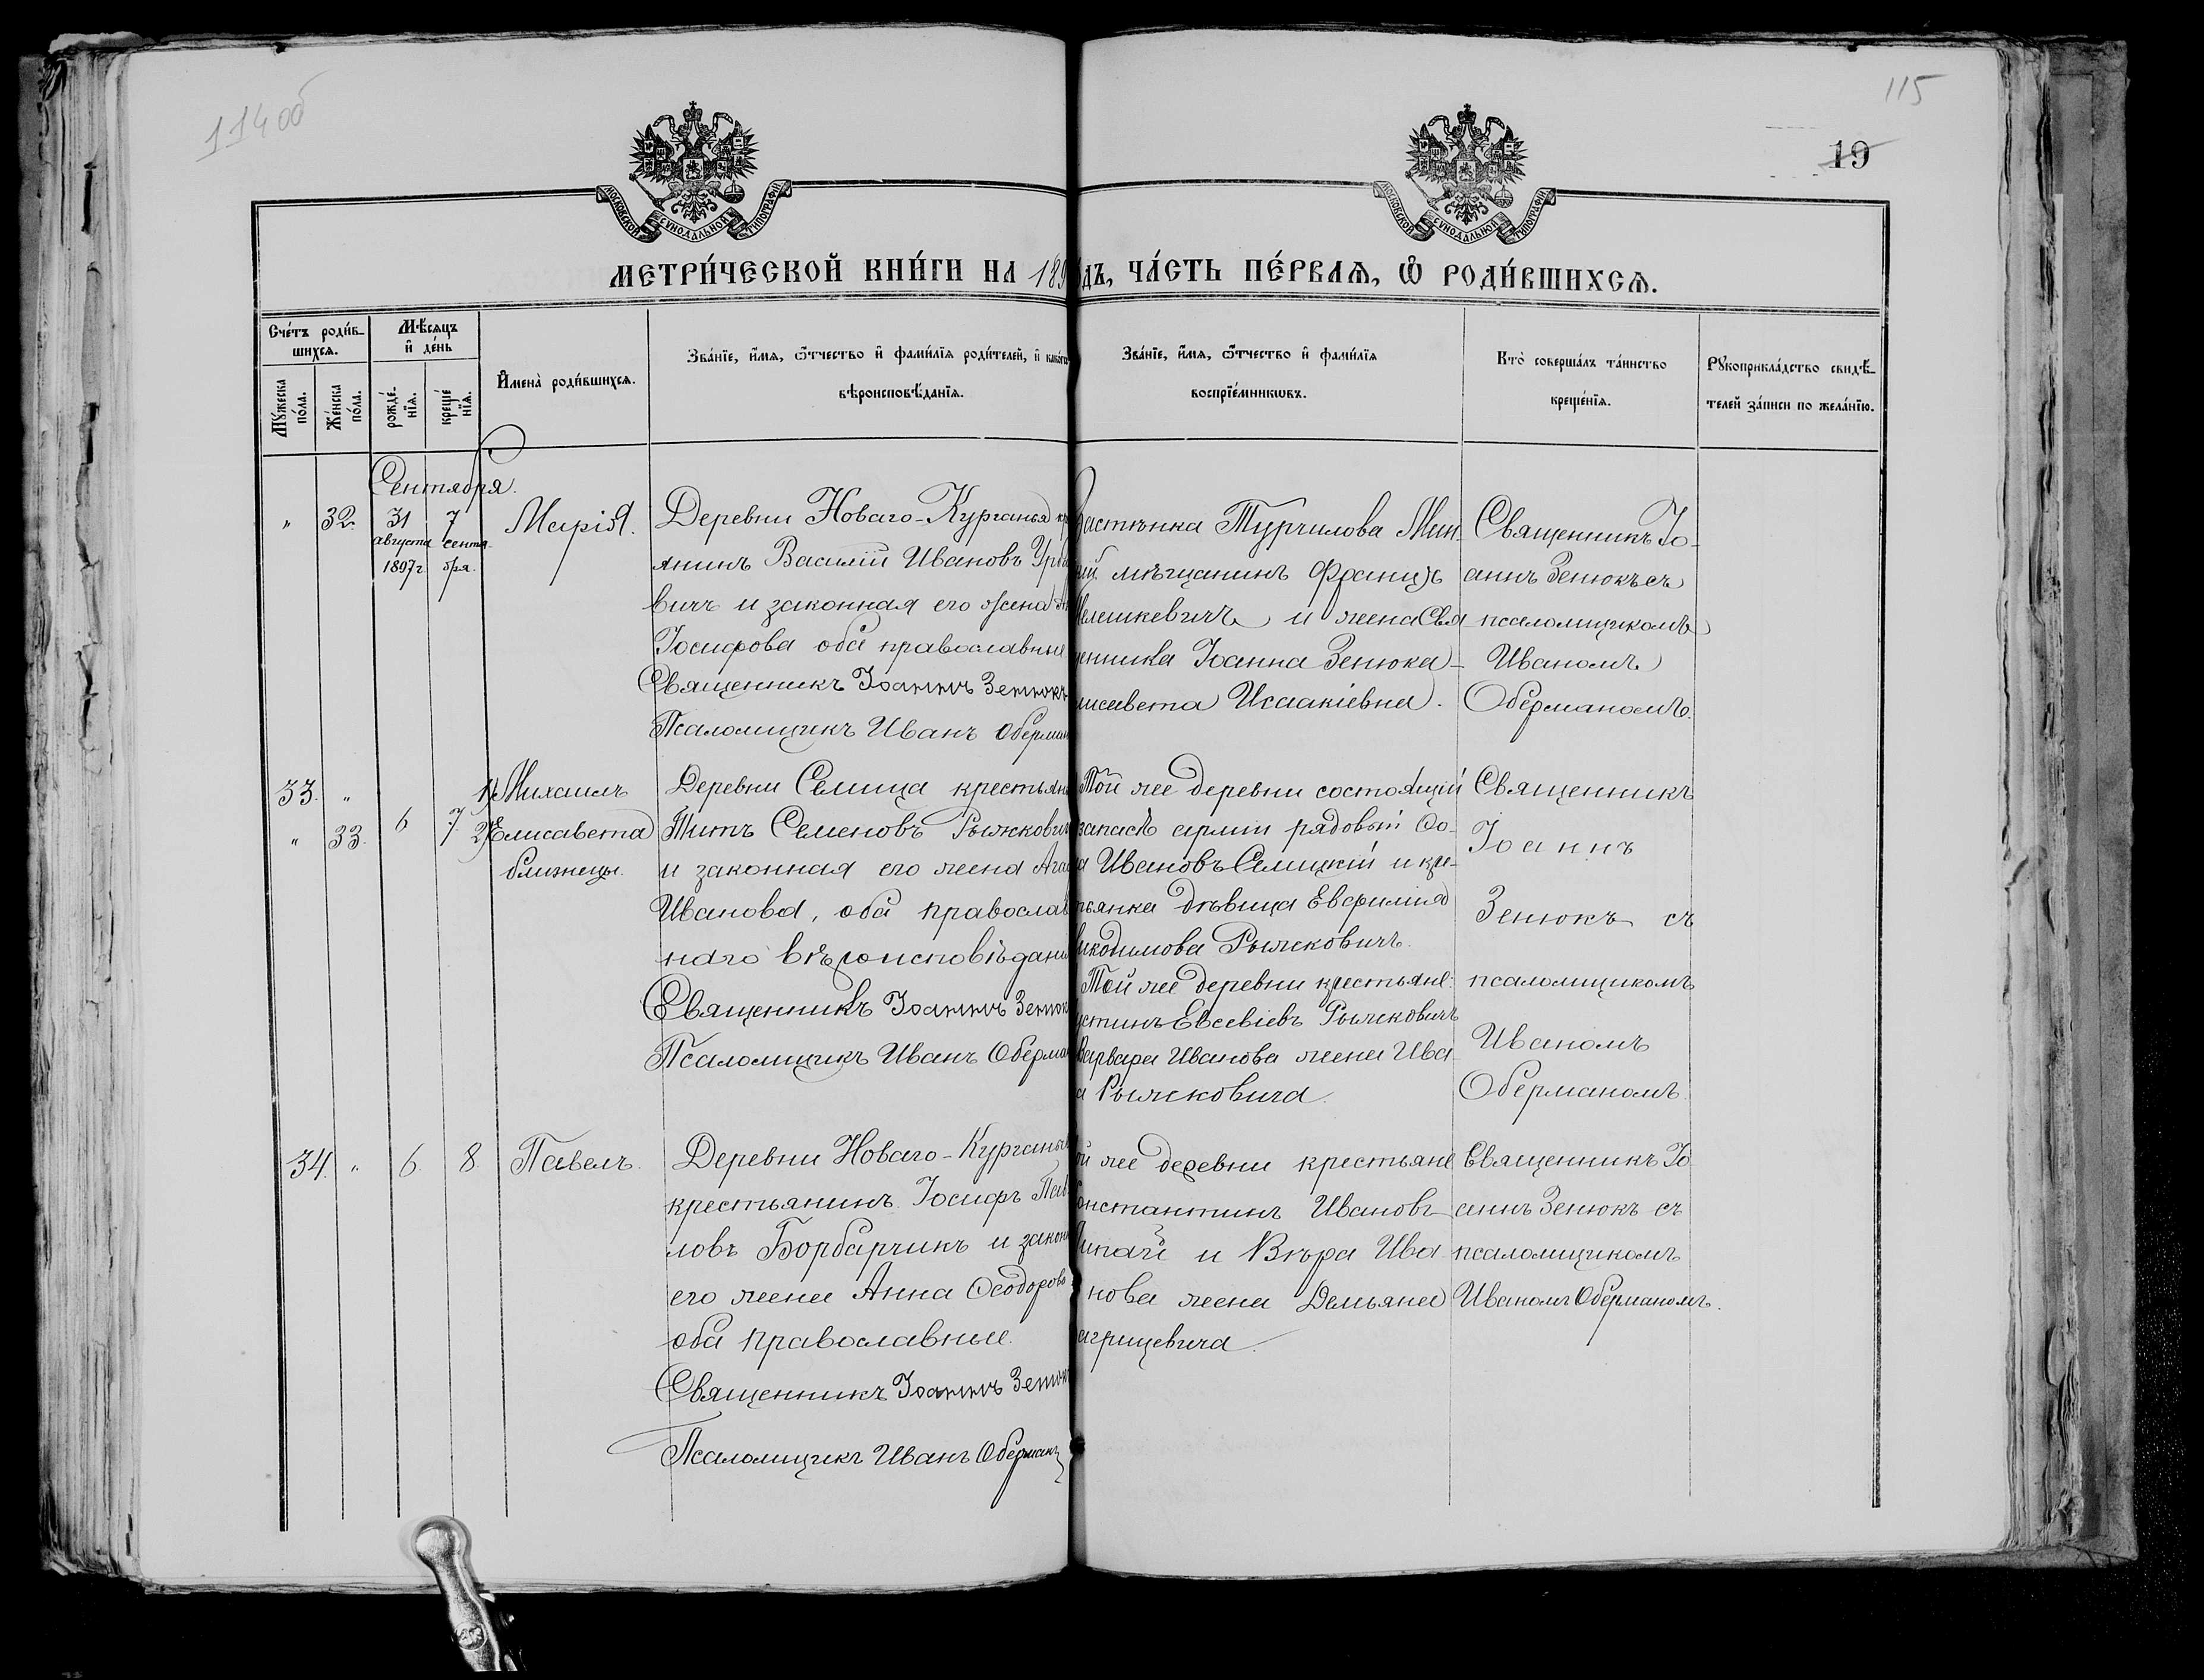 114 об
115
19
МОСКОВСКОЙ СѴНОДАЛЬНОЙ ТИПОГРАФІИ
МОСКОВСКОЙ СѴНОДАЛЬНОЙ ТИПОГРАФІИ
МЕТРИ́ЧЕСКОЙ КНИ́ГИ НА 189
дъ, ЧА́СТЬ ПЕ́РВАѦ, Ѡ҆ РОДИ́ВШИХСѦ.
Сче́тъ роди́в-
шихсѧ.
Мꙋ́жеска
по́ла.
Же́нска
по́ла.
Мѣ́сѧцъ
и҆ де́нь
рожде́-
нїѧ.
креще́
нїѧ.
И҆мена̀ роди́вшихсѧ.
Зва́нїе, и҆́мѧ, ѻ҆́тчество и҆ фами́лїѧ роди́телей, и҆ како́гѡ
вѣроисповѣ́данїѧ.
Зва́нїе, и҆́мѧ, ѻ҆́тчество и҆ фами́лїѧ
воспрїе́мникѡвъ.
Кто̀ соверша́лъ та́инство
креще́нїѧ.
Рꙋкоприкла́дство свидѣ́-
телей за́писи по жела́нїю.
Сентября.
" 32. 31 7
августа сентя-
1897 г. бря.
Марія.
Деревни Новаго-Курганья кр
янинъ Василій Ивановъ Урба
вичъ и законная его жена Ан
Іосифова оба православные
Священникъ Іоаннъ Зенюкъ
Псаломщикъ Иванъ Оберман
Застѣнка Турчилова Мин-
ій мѣщанинъ Францъ
Мелешкевичъ и жена Свя
щенника Іоанна Зенюка-
лисавета Исаакіевна.
Священникъ Іо-
аннъ Зенюкъ съ
псаломщикомъ
Иваномъ
Оберманомъ.
33. "
" 33.
6 7
1) Михаилъ
2) Елисавета
близнецы.
Деревни Селища крестьян
Титъ Семеновъ Рыжкович
и законная его жена Ага
Иванова, оба православ
наго вѣроисповѣдані
Священникъ Іоаннъ Зенюк
Псаломщикъ Иванъ Оберман
Той же деревни состоящій
запасѣ арміи рядовый Ѳо-
а Ивановъ Селицкій и кре-
тьянка дѣвица Евфимія
икодимова Рыжковичъ.
Той же деревни крестьяне:
устинъ Евсевіевъ Рыжковичъ
Варвара Иванова жена Ива-
а Рыжковича.
Священникъ
Іоаннъ
Зенюкъ съ
псаломщикомъ
Иваномъ
Оберманомъ.
34. " 6. 8.
Павелъ.
Деревни Новаго-Курганья
крестьянинъ Іосифъ Пав
ловъ Борбарчикъ и закон
его жена Анна Ѳеодорова
оба православные.
Священникъ Іоаннъ Зенюкъ
Псаломщикъ Иванъ Оберманъ
ой же деревни крестьяне
Константинъ Ивановъ
и Вѣра Ива
нова жена Демьяна
агрицевича.
Священникъ Іо-
аннъ Зенюкъ съ
псаломщикомъ
Иваномъ Оберманомъ.